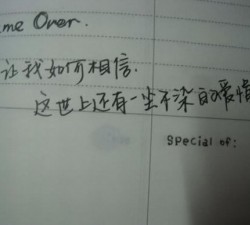 me Over.
让我如何相信.
这世上还有一尘不染的爱情
special of: